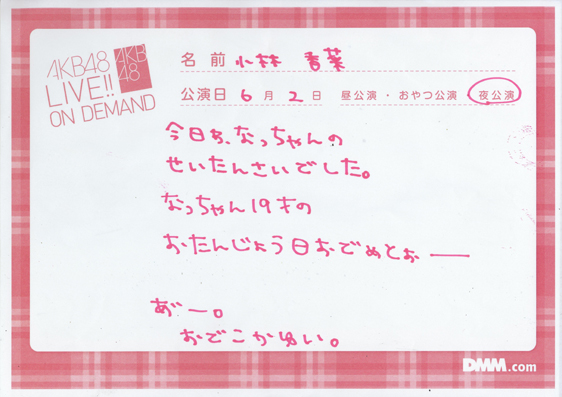 AKB48
LIVE!!
ON DEMAND
AKB
48
名前 小林 香菜
公演日 6月2日 昼公演・おやつ公演・夜公演
今日わ、なっちゃんの
せいたんさいでした。
なっちゃん19才の
おたんじょう日おでめとぉー
あ゛ー。
おでこかゆい。
DMM.com